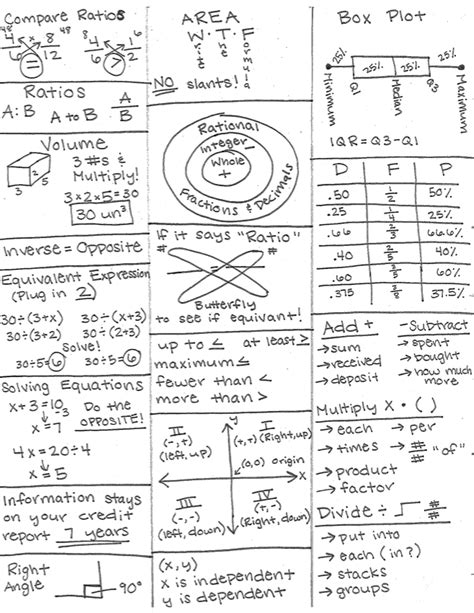 Compare Ratios
48 4/6 × 8/12 48
=
4/6 8/2
>
Ratios
A:B A to B A/B
Volume
3 #s &
Multiply!
3×2×5=30
30 un³
3 2 5
Inverse = Opposite
Equivalent Expression
(Plug in 2)
30÷(3+x) 30÷(x+3)
30÷(3+2) 30÷(2+3)
Solve!
30÷5=6 30÷5=6
Solving Equations
x+3=10 Do the
-3 OPPOSITE!
x=7
4x=20÷4
x=5
Information stays
on your credit
report 7 years
Right
Angle 90°
AREA
W.T.F
Write The Formula
NO slants!
Rational
Integer
Whole
+
Fractions & Decimals
If it says "Ratio"
# #
Butterfly
to see if equivant!
up to ≤ at least ≥
maximum ≤
fewer than <
more than >
y
II I
(-,+) (+,+) (Right,up)
(left,up)
(0,0) origin
x
III IV
(-,-) (+,-)
(left,down) (Right,down)
(x,y)
x is independent
y is dependent
Box Plot
25% 25% 25% 25%
Minimum Q1 Median Q3 Maximum
IQR=Q3-Q1
D F P
.50 1/2 50%
.25 1/4 25%
.66 2/3 66.6%
.40 2/5 40%
.60 3/5 60%
.375 3/8 37.5%
Add + -Subtract
→sum →spent
→received →bought
→deposit →how much
more
Multiply × • ( )
→each →per
→times →#/# "of"
→product
→factor
Divide ÷ #/#
→put into
→each (in?)
→stacks
→groups